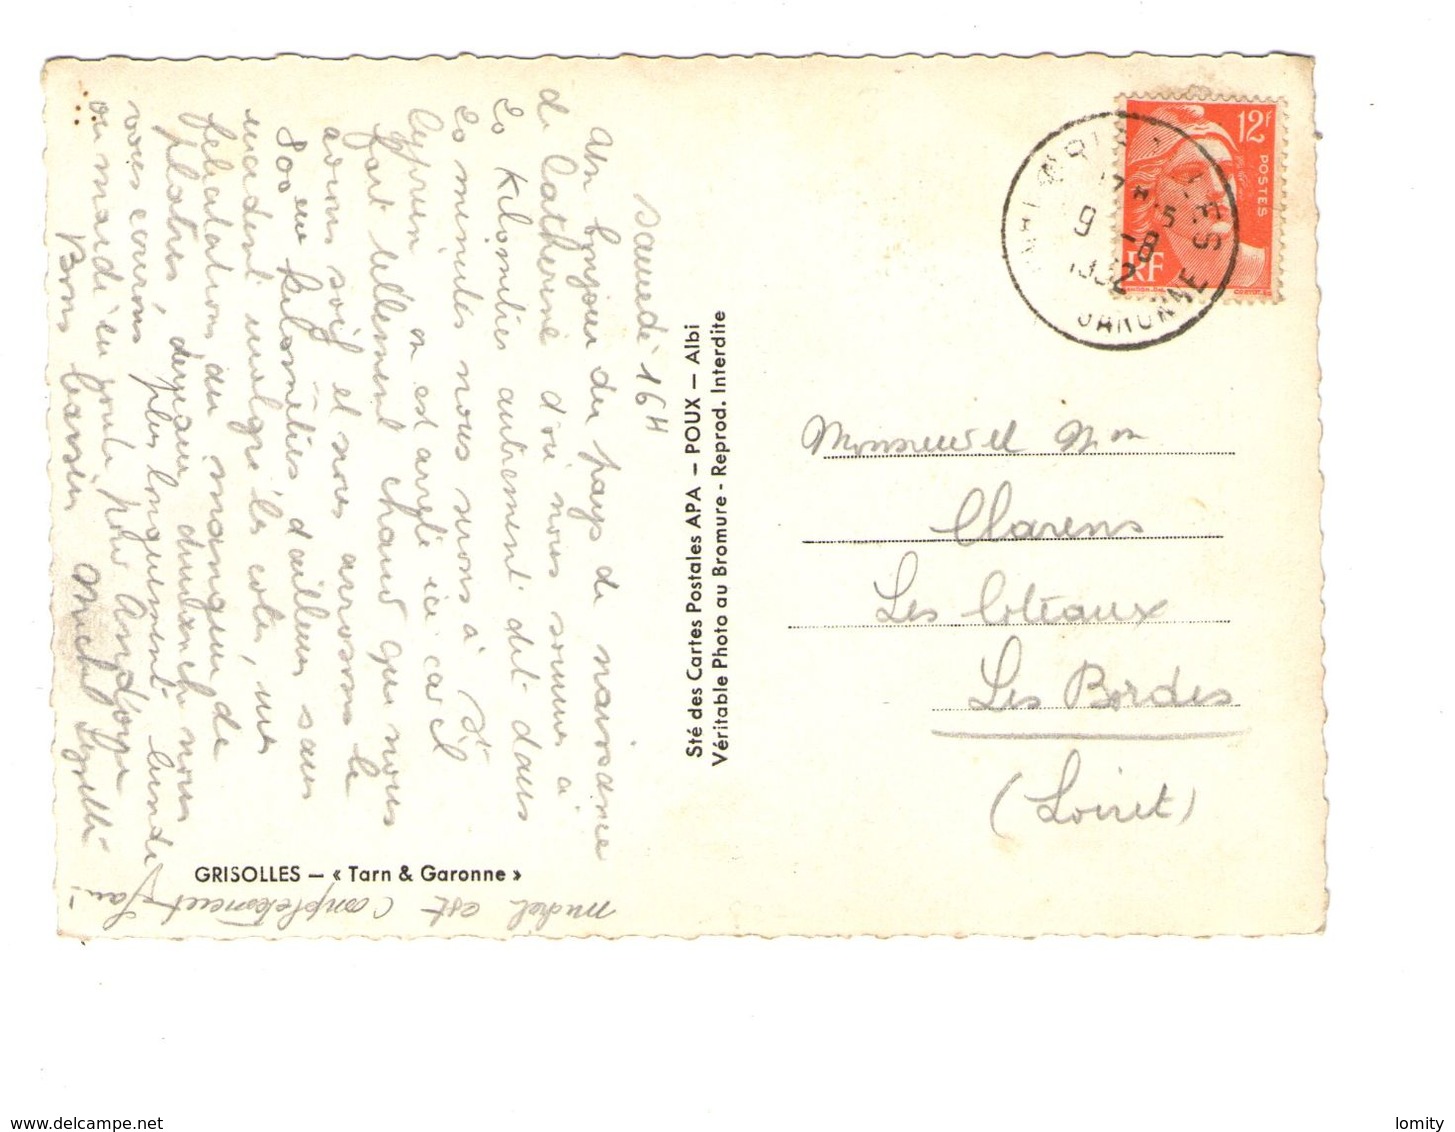 Samedi 16H
Un bonjour du pays de naissance
de Catherine d'où nous sommes à
20 Kilomètres autrement dit dans
20 minutes nous serons à St
Cyprien on est arrêté ici car il
fait tellement chaud que nous
avons soif et nous arrosons le
800ème kilomètres d'ailleurs sans
incident malgré les cotes, mes
félicitations au manque de
platres, depuis dimanche nous
vous écrirons plus longuement lundi
ou mardi en route pour Andorre
Bons baisers Michel
michel est complètement
GRISOLLES — « Tarn & Garonne »
Sté des Cartes Postales APA — POUX — Albi
Véritable Photo au Bromure - Reprod. Interdite
12F
POSTES
RF
GRISOLLES
9 -8
1952
GARONNE
Monsieur et Mme
Clarens
Les Coteaux
Les Bordes
(Loiret)
delcampe.net
lomity